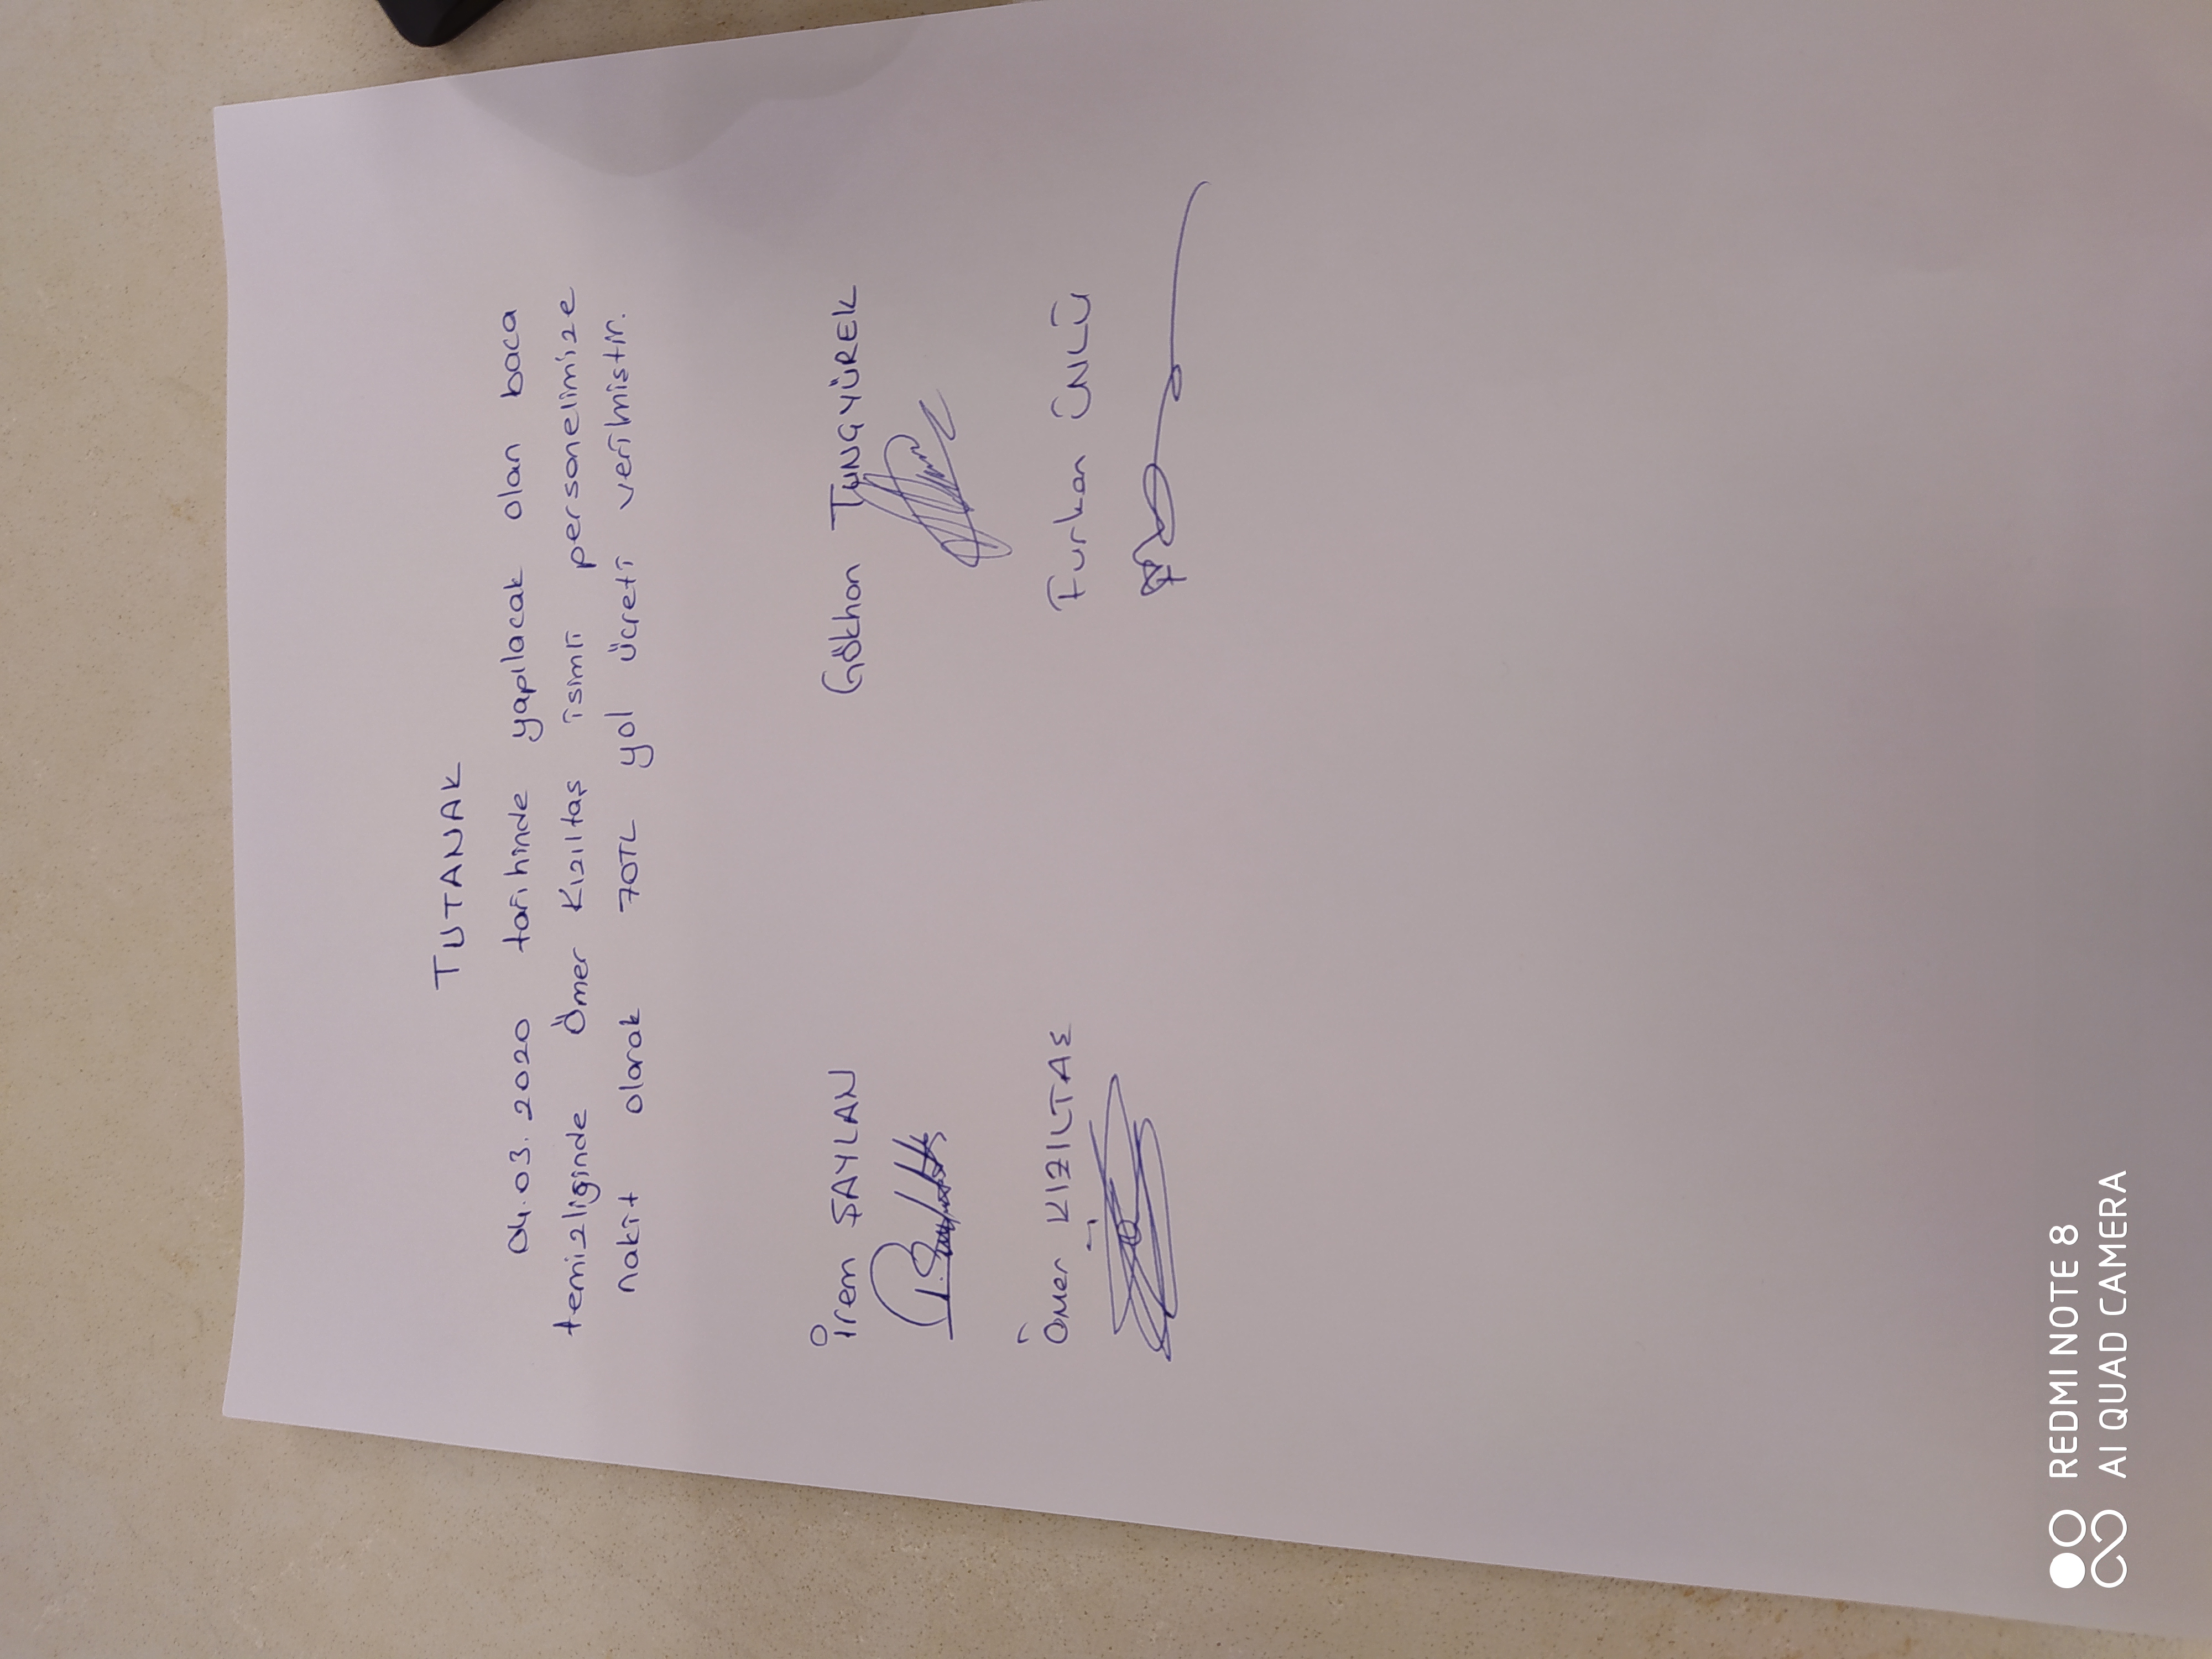 TUTANAK
04.03.2020 tarihinde yapılacak olan baca
temizliginde Ömer Kızıltaş isimli personelimize
nakit olarak 70TL yol ücreti verilmiştir.
İrem ŞAYLAN
Gökhan TUNGYÜREK
Ömer KIZILTAŞ
Furkan ÜNLÜ
REDMI NOTE 8
AI QUAD CAMERA